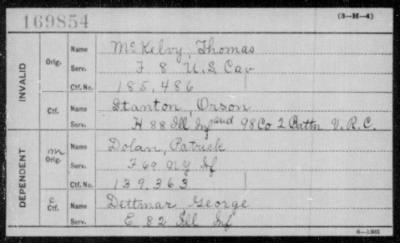 169854 (3-H-4)
INVALID
Orig. Name McKelvy, Thomas
Serv. F 8 U.S. Cav
Ctf. No. 185,486
Ctf. Name Stanton, Orson
Serv. H 88 Ill Inf and 98 Co 2 Battn V.R.C.
DEPENDENT
m Orig. Name Dolan, Patrick
Serv. F 69 NY If
Ctf. No. 139,363
C Ctf. Name Dettmar George
Serv. E 82 Ill Inf